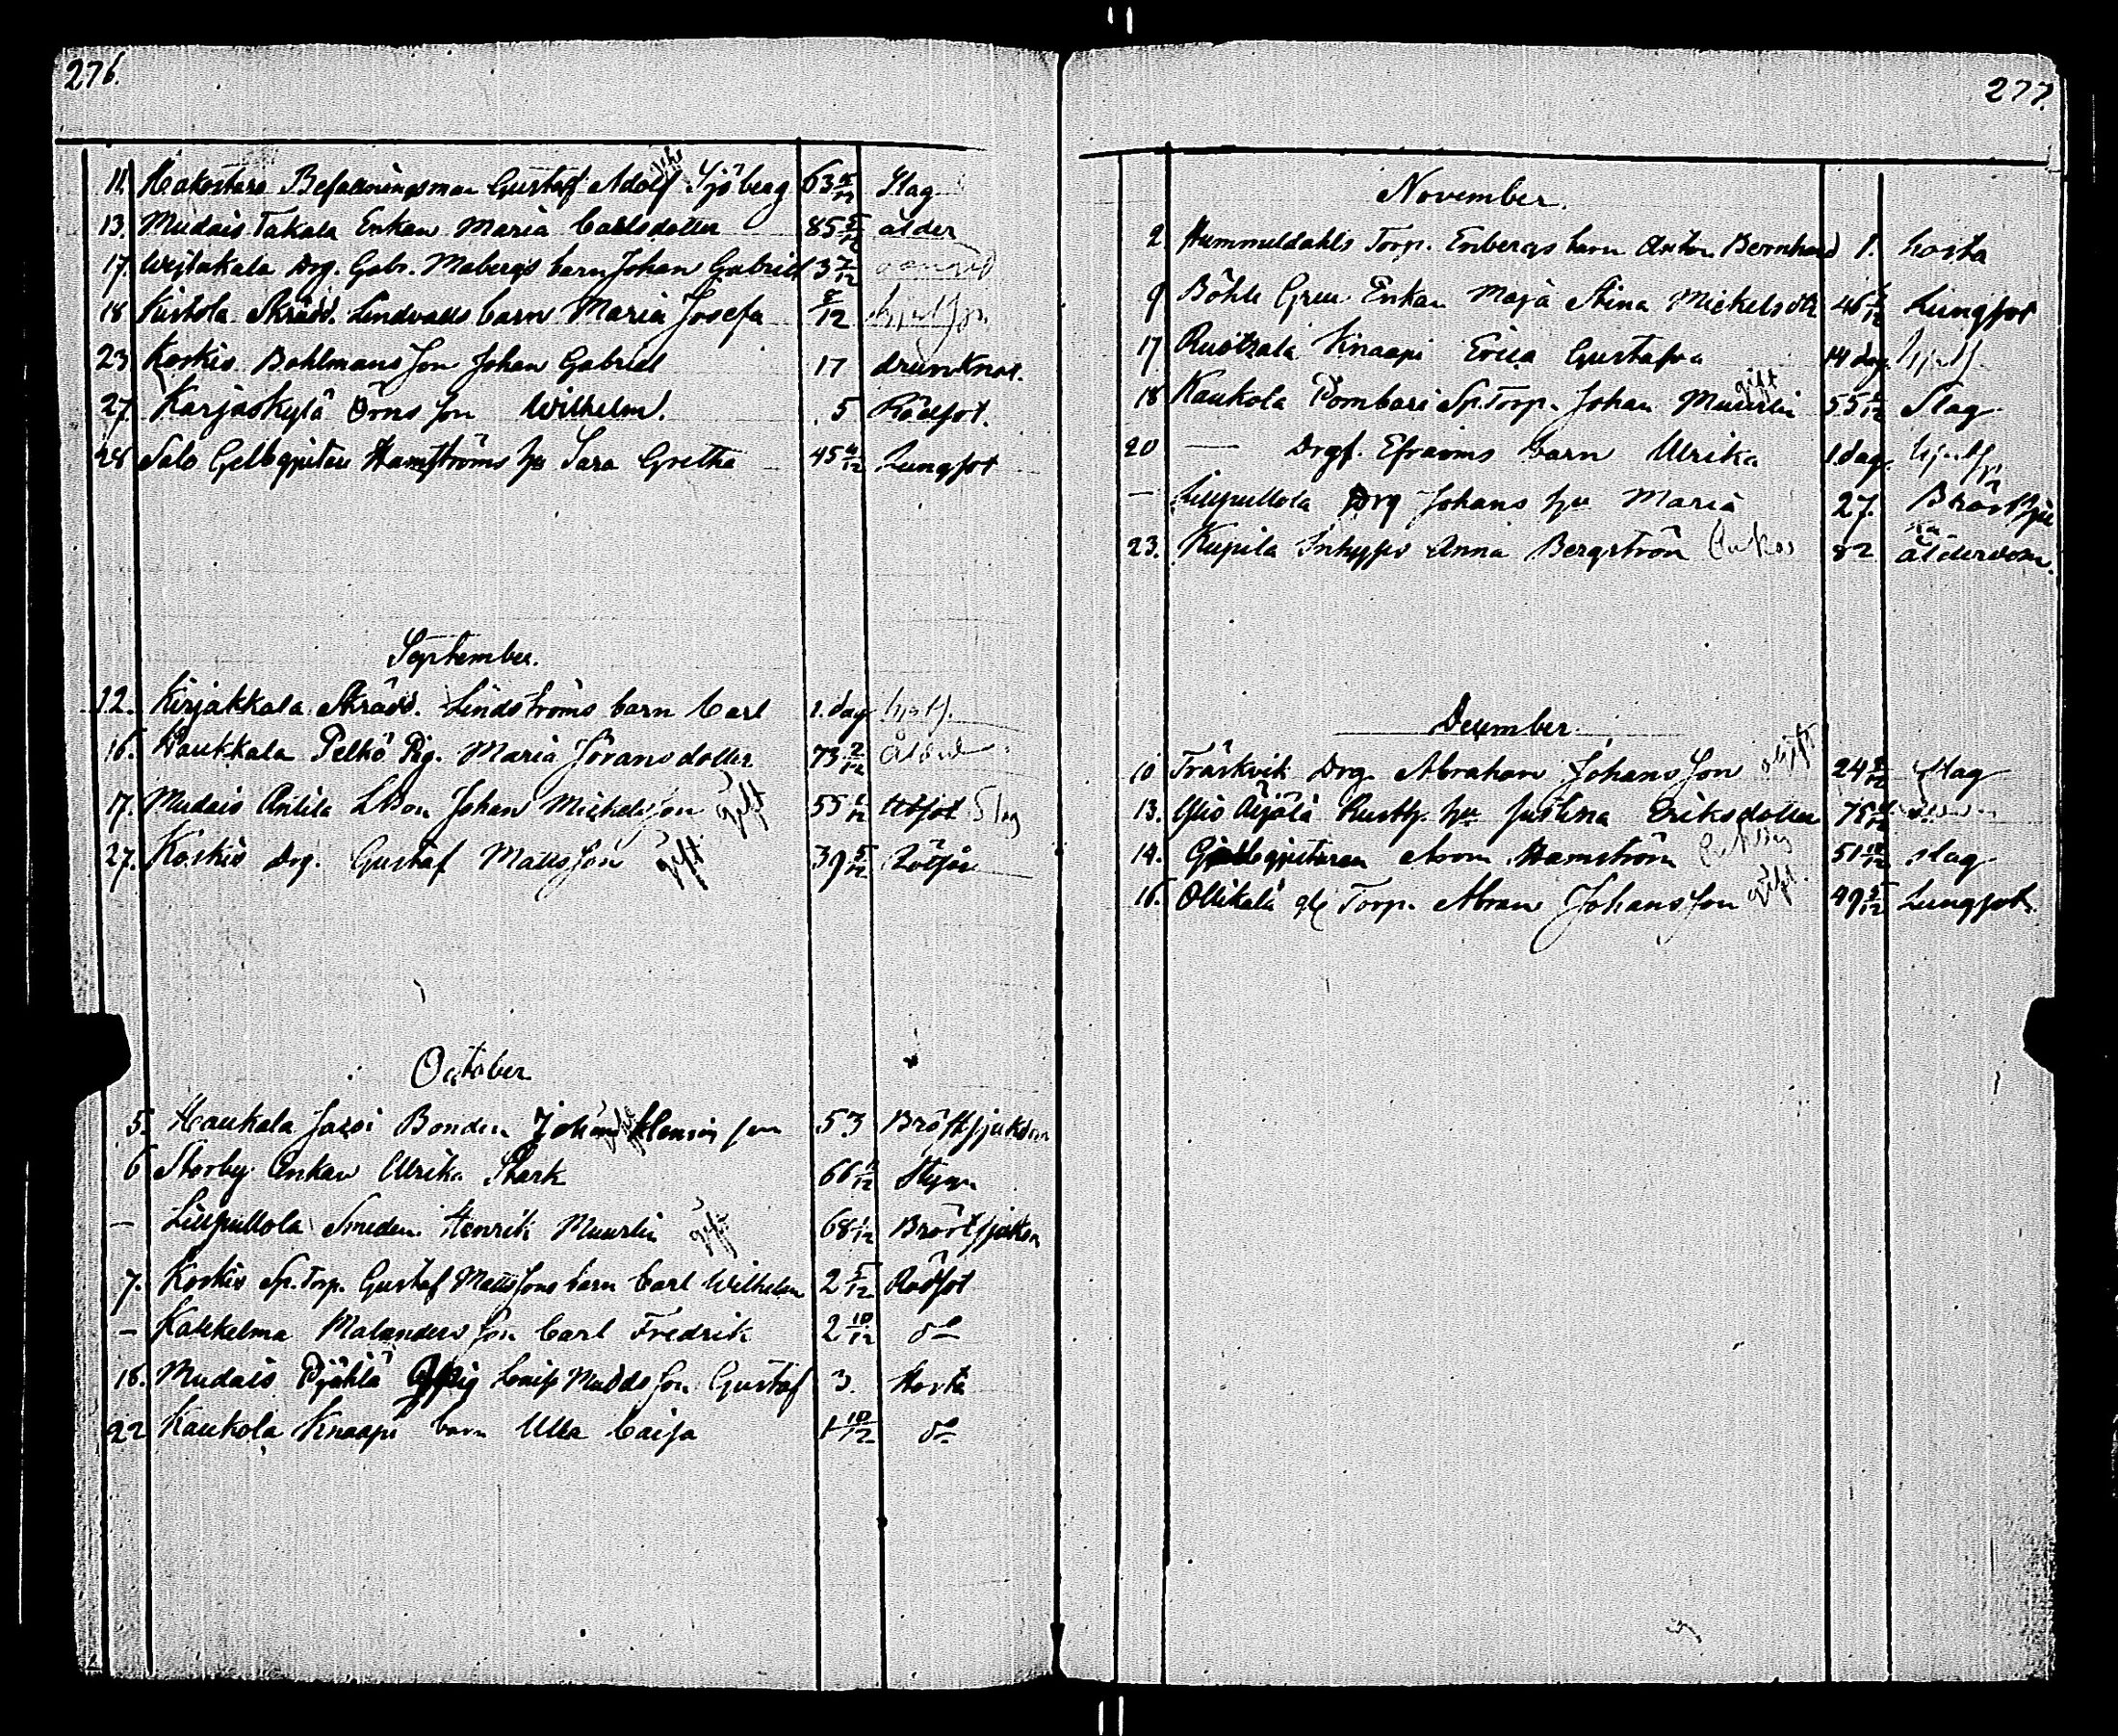 276.
11. Hakostaro Befallningsman Gustaf Adolf Sjöberg 63 Slag
13. Mudais Takala Enkan Maria Carlsdotter 85 ålder
17. Wejtakala Drg. Gabr. Mabergs barn Johan Gabriel 3 7/12
18 Kistola Skrädd. Lindvalls barn Maria Josefa 8/12
23 Koskis Bohlmans Son Johan Gabriel 17 drunknat.
27. Karjaskylä Örns Son Wilhelm. 5 Rödsot.
28 Salo Gelbgjutar Hamströms hu Sara Gretha 45 Lungsot
September.
12. Kirjakkala Skrädd. Lindströms barn Carl 1. dag
16. Haukkala Pelto Pig. Maria Göransdotter 73 2/12
17. Mudais Antila Johan Michelsson gift 55 Slag
27. Koskis Drg. Gustaf Mattsson gift 39 5/12 Rötfeb
October
5. Haukala Jaroi Bonden Johan Henriksson 53 Bröstsjukdom
6 Storby Enkan Ulrika Stark 66 Styng
— Lillpullola Smeden Henrik Muurlin gift 68 1/12 Bröstsjukdom
7. Koskis Sp. Torp. Gustaf Mattssons barn Carl Wilhelm 2 5/12 Rödsot
— Kaukelma Malanders Son Carl Fredrik 2 10/12 do
18. Mudais Pjähla Mudds Son Gustaf 3. Hosta
22 Kaukola Knaapi barn Ulla Caisa 1 10/12 do
277.
November.
2. Hummeldahls Torp. Enbergs barn Anton Bernhard 1. hosta
9 Böhle Enkan Maja Stina Mickelsdtr 46 Lungsot
17 Ruotsala Knaapi Erica Gustafva 14 dag.
18 Kaukola Pombari Sp. Torp. Johan Muurlin gift 55 Slag
20 — Drgs. Efraims barn Ulrika 1. dag
— Lillpullola Drg Johans hu Maria 27. Bröstsju
23. Kupila Inhyses Anna Bergström Enka 82 ålderdom.
December.
10 Träskvik Drg. Abraham Johansson ogift 24 Slag
13. Ylis Äijälä Rusth. hu Justina Eriksdotter 78
14. Gelbgjutaren Abram Hamström 51 slag
16. Ollikala Torp. Abram Johansson gift. 49 5/12 Lungsot.